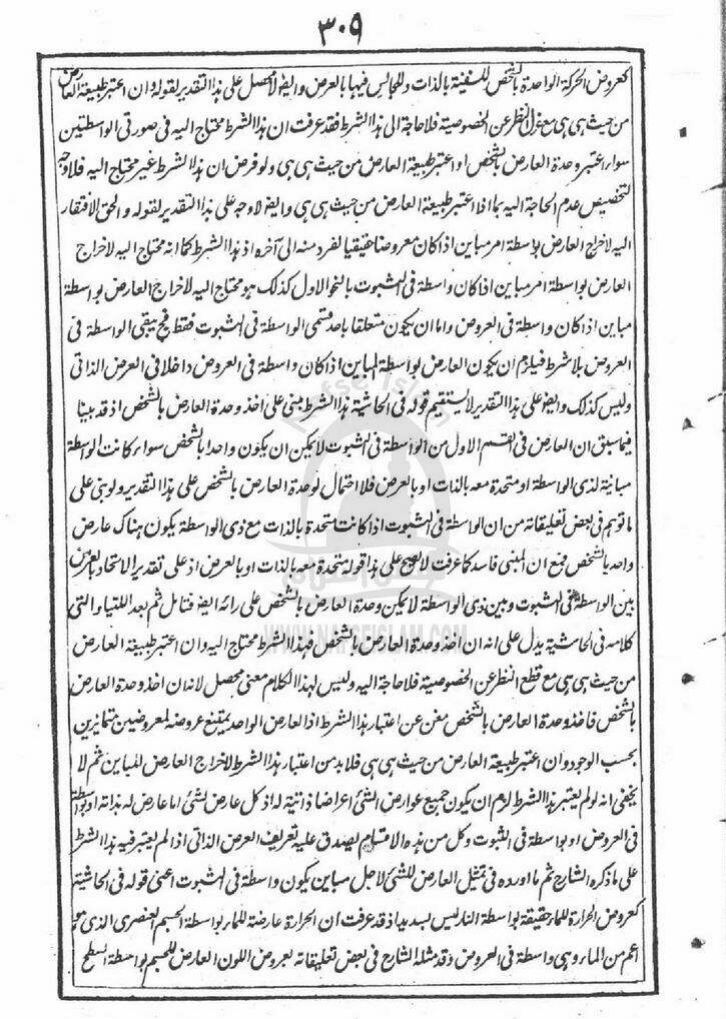 ٣٠٩
كعروض الحركة الواحدة بالشخص للسفينة بالذات وللجالس فيها بالعرض وايضا لا محصل على هذا التقدير لقوله وان اعتبر طبيعة العارض
من حيث هى هى مع عزل النظر عن الخصوصية فلا حاجة الى هذا الشرط فقد عرفت ان هذا الشرط محتاج اليه فى صورتى الواسطتين
سواء اعتبر وحدة العارض بالشخص او اعتبر طبيعة العارض من حيث هى هى ولو فرض ان هذا الشرط غير محتاج اليه فلا وجه
لتخصيص عدم الحاجة اليه بما اذا اعتبر طبيعة العارض من حيث هى هى وايضا لا وجه على هذا التقدير لقوله والحق الافتقار
اليه لاخراج العارض بواسطة امر مباين اذا كان معروضا حقيقيا لفرد منه الى آخره اذ هذا الشرط كما انه محتاج اليه لاخراج
العارض بواسطة امر مباين اذا كان واسطة فى الثبوت بالنحو الاول كذلك هو محتاج اليه لاخراج العارض بواسطة
مباين اذا كان واسطة فى العروض واما ان يكون متعلقا باحد قسمى الواسطة فى الثبوت فقط فح يبقى الواسطة فى
العروض بلا شرط فيلزم ان يكون العارض بواسطة المباين اذا كان واسطة فى العروض داخلا فى العرض الذاتى
وليس كذلك وايضا على هذا التقدير لا يستقيم قوله فى الحاشية هذا الشرط مبنى على اخذ وحدة العارض بالشخص اذ قد بينا
فيما سبق ان العارض فى القسم الاول من الواسطة فى الثبوت لا يمكن ان يكون واحدا بالشخص سواء كانت الواسطة
مباينة لذى الواسطة او متحدة معه بالذات او بالعرض فلا احتمال لوحدة العارض بالشخص على هذا التقدير ولو بنى على
ما توهم فى بعض تعليقاته من ان الواسطة فى الثبوت اذا كانت متحدة بالذات مع ذى الواسطة يكون هناك عارض
واحد بالشخص فمع ان المبنى فاسد كما عرفت لا يصح على هذا قوله متحدة معه بالذات او بالعرض اذ على تقدير الاتحاد بالعرض
بين الواسطة فى الثبوت وبين ذى الواسطة لا يمكن وحدة العارض بالشخص على رائه ايضا فتامل ثم بعد اللتيا والتى
كلامه فى الحاشية يدل على انه ان اخذ وحدة العارض بالشخص فهذا الشرط محتاج اليه وان اعتبر طبيعة العارض
من حيث هى هى مع قطع النظر عن الخصوصية فلا حاجة اليه وليس لهذا الكلام معنى محصل لانه ان اخذ وحدة العارض
بالشخص فاخذ وحدة العارض بالشخص مغن عن اعتبار هذا الشرط اذ العارض الواحد يمتنع عروضه لمعروضين متمايزين
بحسب الوجود وان اعتبر طبيعة العارض من حيث هى هى فلا بد من اعتبار هذا الشرط لاخراج العارض للمباين ثم لا
يخفى انه لو لم يعتبر هذا الشرط لزم ان يكون جميع عوارض الشئ اعراضا ذاتية له اذ كل عارض لشئ اما عارض له بذاته او بواسطة
فى العروض او بواسطة فى الثبوت وكل من هذه الاقسام يصدق عليه تعريف العرض الذاتى اذا لم يعتبر فيه هذا الشرط
على ما ذكره الشارح ثم ما اورده فى تمثيل العارض للشئ لاجل مباين يكون واسطة فى الثبوت اعنى قوله فى الحاشية
كعروض الحرارة للماء حقيقة بواسطة النار ليس بسديد اذ قد عرفت ان الحرارة عارضة للماء بواسطة الجسم العنصرى الذى هو
اعم من الماء وهى واسطة فى العروض وقد مثله الشارح فى بعض تعليقاته بعروض اللون العارض للجسم بواسطة السطح
WWW.NAFSEISLAM.COM